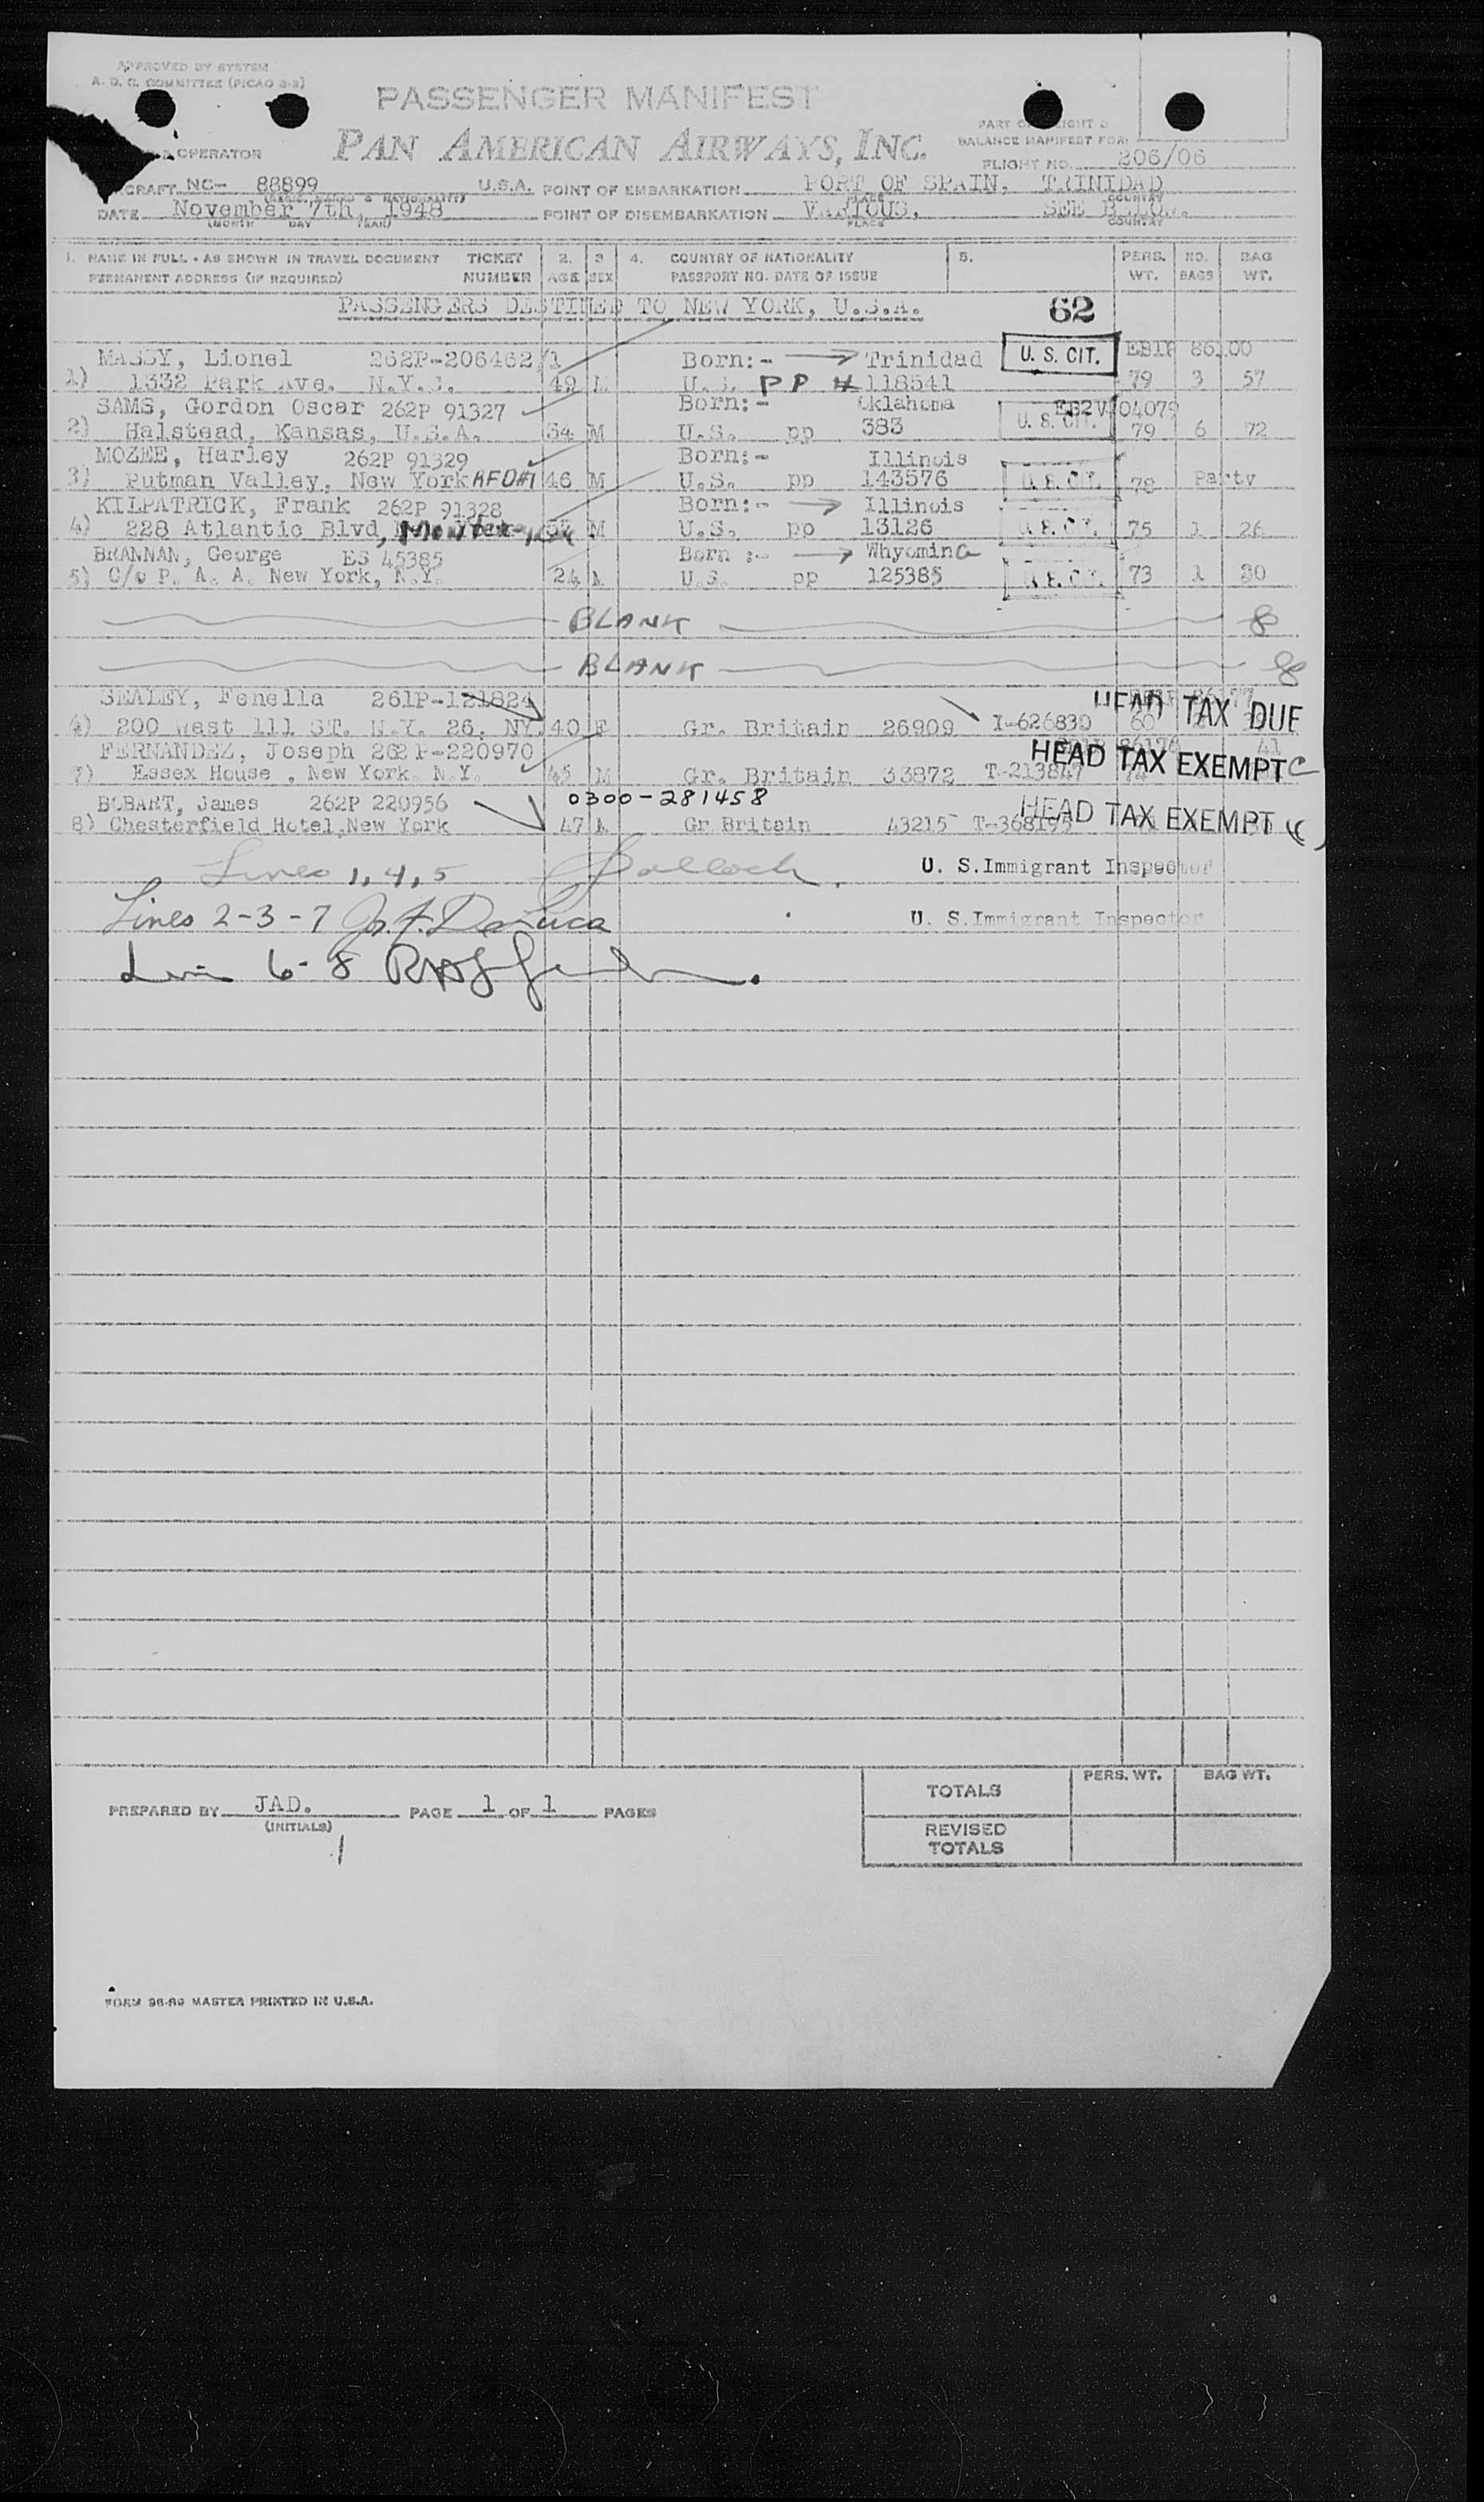 APPROVED BY SYSTEM
A. O. C. COMMITTEE (PICAO 3-2)
PASSENGER MANIFEST
PAN AMERICAN AIRWAYS, INC.
OPERATOR
PART OF FLIGHT &
BALANCE MANIFEST FOR:
FLIGHT NO. 206/06
CRAFT NC- 88899 U.S.A. POINT OF EMBARKATION PORT OF SPAIN, TRINIDAD
(MARKS & NATIONALITY) PLACE COUNTRY
DATE November 7th, 1948 POINT OF DISEMBARKATION VARIOUS, SEE BELOW.
(MONTH DAY YEAR) PLACE COUNTRY
1. NAME IN FULL - AS SHOWN IN TRAVEL DOCUMENT TICKET 2. 3 4. COUNTRY OF NATIONALITY 5. PERS. NO. BAG
PERMANENT ADDRESS (IF REQUIRED) NUMBER AGE SEX PASSPORT NO. DATE OF ISSUE WT. BAGS WT.
PASSENGERS DESTINED TO NEW YORK, U.S.A. 62
MASSY, Lionel 262P-206462/1 Born:- Trinidad U. S. CIT. EB1P 86100
1) 1332 Park Ave. N.Y.C. 49 M U.S. PP # 118541 79 3 57
SAMS, Gordon Oscar 262P 91327 Born:- Oklahoma EB2V 04079
2) Halstead, Kansas, U.S.A. 54 M U.S. pp 383 U. S. CIT. 79 6 72
MOZEE, Harley 262P 91329 Born:- Illinois
3) Putman Valley, New York RFD#1 46 M U.S. pp 143576 U. S. CIT. 78 Party
KILPATRICK, Frank 262P 91328 Born:- Illinois
4) 228 Atlantic Blvd, M U.S. pp 13126 U. S. CIT. 75 1 26
BRANNAN, George ES 45385 Born :- Whyoming
5) C/o P. A. A. New York, N.Y. 24 M U.S. pp 125385 U. S. CIT. 73 1 30
BLANK 8
BLANK 8
SEALEY, Fenella 261P-121824
6) 200 West 111 ST. N.Y. 26, NY. 40 F Gr. Britain 26909 I-626830 60 HEAD TAX DUE
FERNANDEZ, Joseph 262P-220970 41
7) Essex House , New York. N.Y. 45 M Gr. Britain 33872 T-213847 74 HEAD TAX EXEMPT C
BOBART, James 262P 220956 0300-281458
8) Chesterfield Hotel,New York 47 M Gr Britain 43215 T-368195 HEAD TAX EXEMPT
Lines 1,4,5 U. S.Immigrant Inspector
Lines 2-3-7 Jo. F. DeLuca U. S.Immigrant Inspector
6-8
TOTALS PERS. WT. BAG WT.
PREPARED BY JAD. PAGE 1 OF 1 PAGES
(INITIALS)
REVISED
TOTALS
1
FORM 96-89 MASTER PRINTED IN U.S.A.